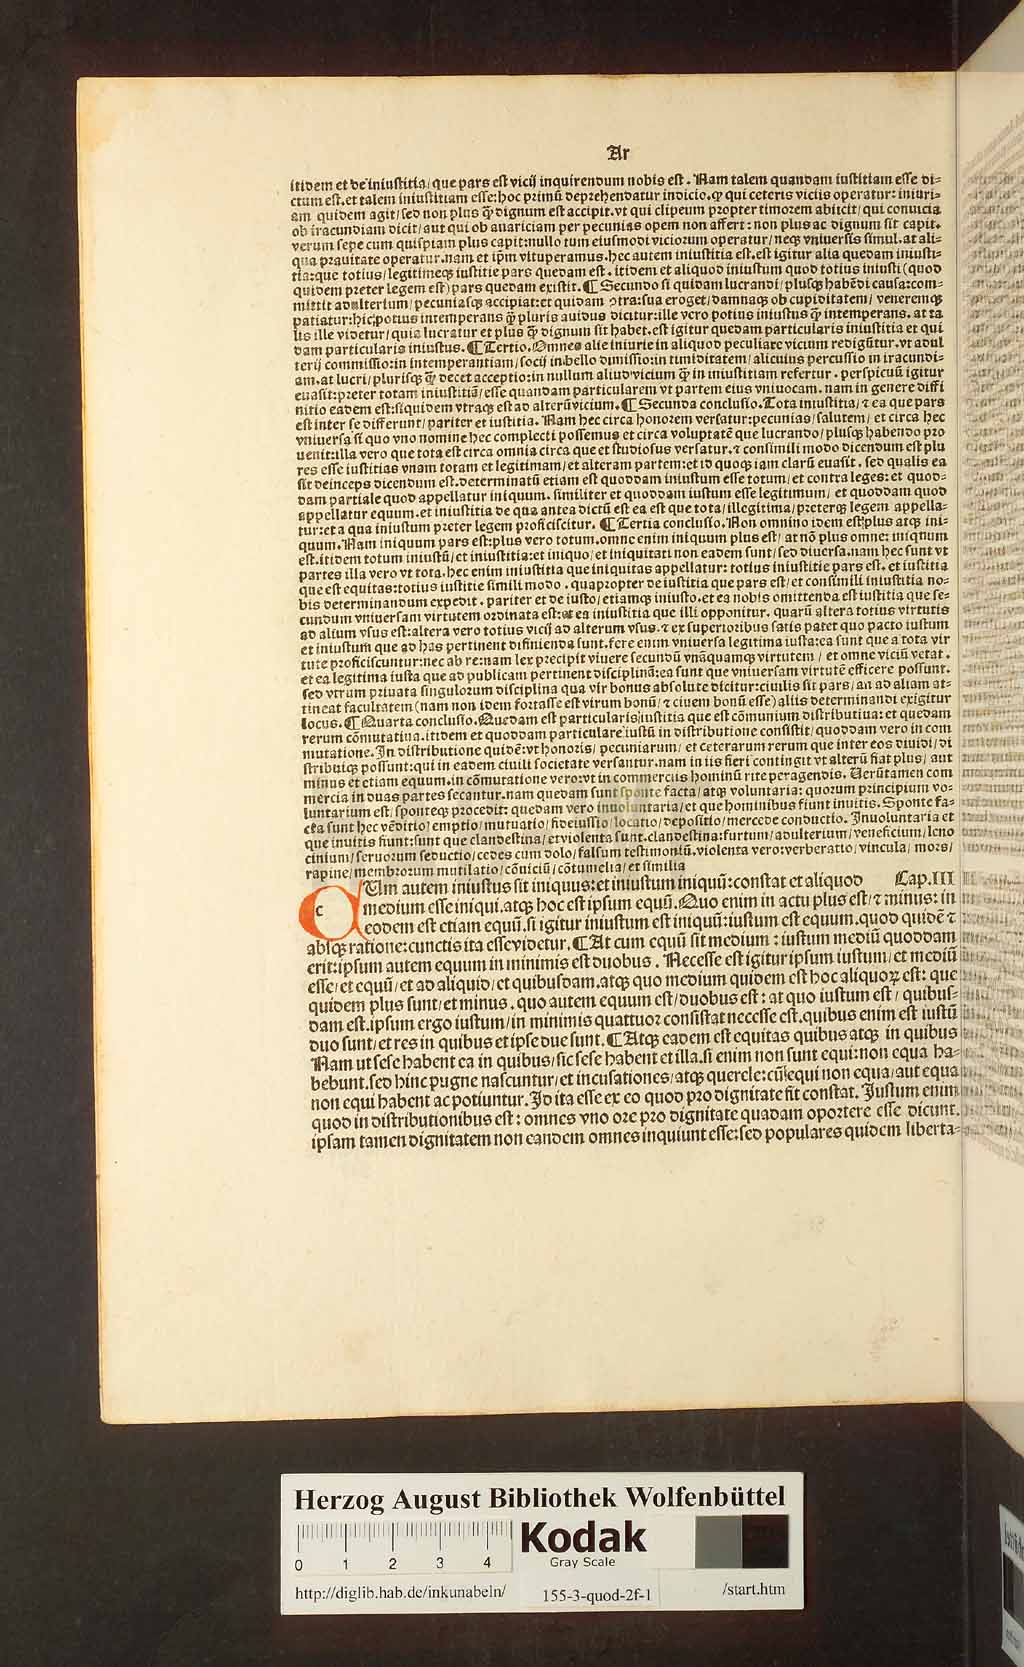 Ar
itidem et de iniustitia/ que pars est vicij inquirendum nobis est. Nam talem quandam iustitiam esse di-
ctum est. et talem iniustitiam esse: hoc primū deprehendatur indicio. ꝙ qui ceteris viciis operatur: iniuri-
am quidem agit/ sed non plus q̄ꝫ dignum est accipit. vt qui clipeum propter timorem abiicit/ qui conuicia
ob iracundiam dicit/ aut qui ob auariciam per pecunias opem non affert: non plus ac dignum sit capit.
verum sepe cum quispiam plus capit: nullo tum eiusmodi viciorum operatur/ neqꝫ vniuersis simul. at ali-
qua prauitate operatur. nam et ip̄m vituperamus. hec autem iniustitia est. est igitur alia quedam iniusti-
tia: que totius/ legitimeqꝫ iustitie pars quedam est. itidem et aliquod iniustum quod totius iniusti (quod
quidem preter legem est) pars quedam existit. ¶ Secundo si quidam lucrandi/ plusqꝫ habēdi causa: com-
mittit adulterium/ pecuniasqꝫ accipiat: et quidam ↄtra: sua eroget/ damnaqꝫ ob cupiditatem/ veneremqꝫ
patiatur: hic: potius intemperans q̄ꝫ pluris auidus dicitur: ille vero potius iniustus q̄ꝫ intemperans. at ta
lis ille videtur/ quia lucratur et plus q̄ꝫ dignum sit habet. est igitur quedam particularis iniustitia et qui
dam particularis iniustus. ¶ Tertio. Omnes alie iniurie in aliquod peculiare vicium redigūtur. vt adul
terij commissio: in intemperantiam/ socij in bello dimissio: in timiditatem/ alicuius percussio in iracundi-
am. at lucri/ plurisqꝫ q̄ꝫ decet acceptio: in nullum aliud vicium q̄ꝫ in iniustitiam refertur. perspicuū igitur
euasit: preter totam iniustitiā/ esse quandam particularem vt partem eius vniuocam. nam in genere diffi
nitio eadem est: siquidem vtraqꝫ est ad alterū vicium. ¶ Secunda conclusio. Tota iniustitia/ ⁊ ea que pars
est inter se differunt/ pariter et iustitia. Nam hec circa honorem versatur: pecunias/ salutem/ et circa hec
vniuersa si quo vno nomine hec complecti possemus et circa voluptatē que lucrando/ plusqꝫ habendo pro
uenit: illa vero que tota est circa omnia circa que et studiosus versatur. ⁊ consimili modo dicendum est plu
res esse iustitias vnam totam et legitimam/ et alteram partem: et id quoqꝫ iam clarū euasit. sed qualis ea
sit deinceps dicendum est. determinatū etiam est quoddam iniustum esse totum/ et contra leges: et quod-
dam partiale quod appellatur iniquum. similiter et quoddam iustum esse legitimum/ et quoddam quod
appellatur equum. et iniustitia de qua antea dictū est ea est que tota/ illegitima/ preterqꝫ legem appella-
tur: et a qua iniustum preter legem proficiscitur. ¶ Tertia conclusio. Non omnino idem est: plus atqꝫ ini-
quum. Nam iniquum pars est: plus vero totum. omne enim iniquum plus est/ at nō plus omne: iniqnum
est. itidem totum iniustū/ et iniustitia: et iniquo/ et iniquitati non eadem sunt/ sed diuersa. nam hec sunt vt
partes illa vero vt tota. hec enim iniustitia que iniquitas appellatur: totius iniustitie pars est. et iustitia
que est equitas: totius iustitie simili modo. quapropter de iustitia que pars est/ et consimili iniustitia no-
bis determinandum expedit. pariter et de iusto/ etiamqꝫ iniusto. et ea nobis omittenda est iustitia que se-
cundum vniuersam virtutem ordinata est: et ea iniustitia que illi opponitur. quarū altera totius virtutis
ad alium vsus est: altera vero totius vicij ad alterum vsus. ⁊ ex superioribus satis patet quo pacto iustum
et iniustum que ad has pertinent difinienda sunt. fere enim vniuersa legitima iusta: ea sunt que a tota vir
tute proficiscuntur: nec ab re: nam lex precipit viuere secundū vnāquamqꝫ virtutem/ et omne viciū vetat.
et ea legitima iusta que ad publicam pertinent disciplinā: ea sunt que vniuersam virtutē efficere possunt.
sed vtrum priuata singulorum disciplina qua vir bonus absolute dicitur: ciuilis sit pars/ an ad aliam at-
tineat facultatem (nam non idem fortasse est virum bonū/ ⁊ ciuem bonū esse) aliis determinandi exigitur
locus. ¶ Quarta conclusio. Quedam est particularis iustitia que est cōmunium distributiua: et quedam
rerum cōmutatiua. itidem et quoddam particulare iustū in distributione consistit/ quoddam vero in com
mutatione. In distributione quidē: vt honoris/ pecuniarum/ et ceterarum rerum que inter eos diuidi/ di
stribuiqꝫ possunt: qui in eadem ciuili societate versantur. nam in iis fieri contingit vt alterū fiat plus/ aut
minus et etiam equum. in cōmutatione vero: vt in commerciis hominū rite peragendis. Uerūtamen com
mercia in duas partes secantur. nam quedam sunt sponte facta/ atqꝫ voluntaria: quorum principium vo-
luntarium est/ sponteqꝫ procedit: quedam vero inuoluntaria/ et que hominibus fiunt inuitis. Sponte fa-
cta sunt hec vēditio/ emptio/ mutuatio/ fideiussio/ locatio/ depositio/ mercede conductio. Inuoluntaria et
que inuitis fiunt: sunt que clandestina/ et violenta sunt. clandestina: furtum/ adulterium/ veneficium/ leno
cinium/ seruorum seductio/ cedes cum dolo/ falsum testimoniū. violenta vero: verberatio/ vincula/ mors/
rapine/ membrorum mutilatio/ cōuiciū/ cōtumelia/ et similia
c Um autem iniustus sit iniquus: et iniustum iniquū: constat et aliquod Cap. III
medium esse iniqui. atqꝫ hoc est ipsum equū. Quo enim in actu plus est/ ⁊ minus: in
eodem est etiam equū. si igitur iniustum est iniquū: iustum est equum. quod quidē ⁊
absqꝫ ratione: cunctis ita esse videtur. ¶ At cum equū sit medium: iustum mediū quoddam
erit: ipsum autem equum in minimis est duobus. Necesse est igitur ipsum iustum/ et mediū
esse/ et equū/ et ad aliquid/ et quibusdam. atqꝫ quo medium quidem est hoc aliquoꝝ est: que
quidem plus sunt/ et minus. quo autem equum est/ duobus est: at quo iustum est/ quibus-
dam est. ipsum ergo iustum/ in minimis quattuor consistat necesse est. quibus enim est iustū
duo sunt/ et res in quibus et ipse due sunt. ¶ Atqꝫ eadem est equitas quibus atqꝫ in quibus
Nam ut sese habent ea in quibus/ sic sese habent et illa. si enim non sunt equi: non equa ha-
bebunt. sed hinc pugne nascuntur/ et incusationes/ atqꝫ querele: cū equi non equa/ aut equa
non equi habent ac potiuntur. Id ita esse ex eo quod pro dignitate fit constat. Iustum enim
quod in distributionibus est: omnes vno ore pro dignitate quadam oportere esse dicunt.
ipsam tamen dignitatem non eandem omnes inquiunt esse: sed populares quidem liberta-
Herzog August Bibliothek Wolfenbüttel
0 1 2 3 4
Kodak
Gray Scale
http://diglib.hab.de/inkunabeln/ 155-3-quod-2f-1 /start.htm